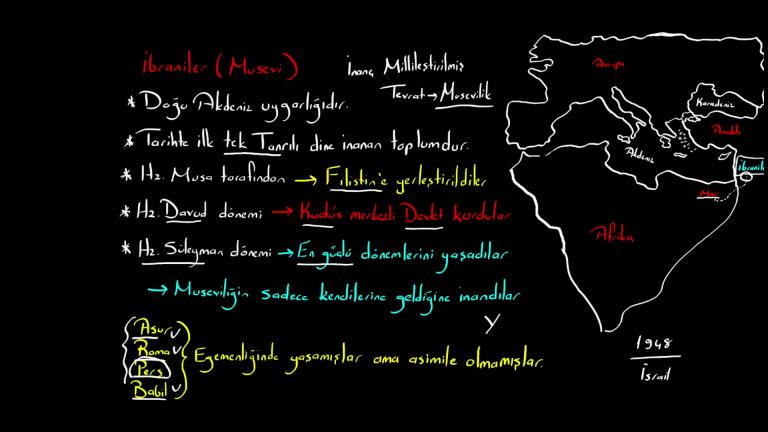 İbraniler (Musevi)
İnanç Millileştirilmiş
Tevrat → Musevilik
* Doğu Akdeniz uygarlığıdır.
* Tarihte ilk tek Tanrılı dine inanan toplumdur.
* Hz. Musa tarafından → Filistin'e yerleştirildiler
* Hz. Davud dönemi → Kudüs merkezli Devlet kurdular
* Hz. Süleyman dönemi → En güçlü dönemlerini yaşadılar
→ Museviliğin sadece kendilerine geldiğine inandılar
Y
Asur ✓
Roma ✓
Pers
Babil ✓
Egemenliğinde yaşamışlar ama asimile olmamışlar.
Avrupa
Karadeniz
Anadolu
Akdeniz
İbranile
Mısır
Afrika
1948
İsrail